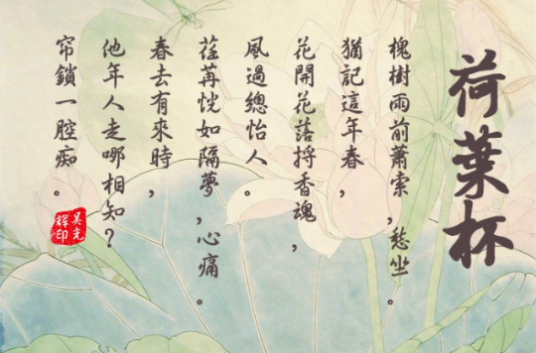 荷葉杯
槐樹雨前蕭索，愁坐。
猶記這年春，
花開花落捋香魂，
風過總怡人。
荏苒恍如隔夢，心痛。
春去有來時，
他年人走哪相知？
帘鎖一腔痴。
吳光
輝印